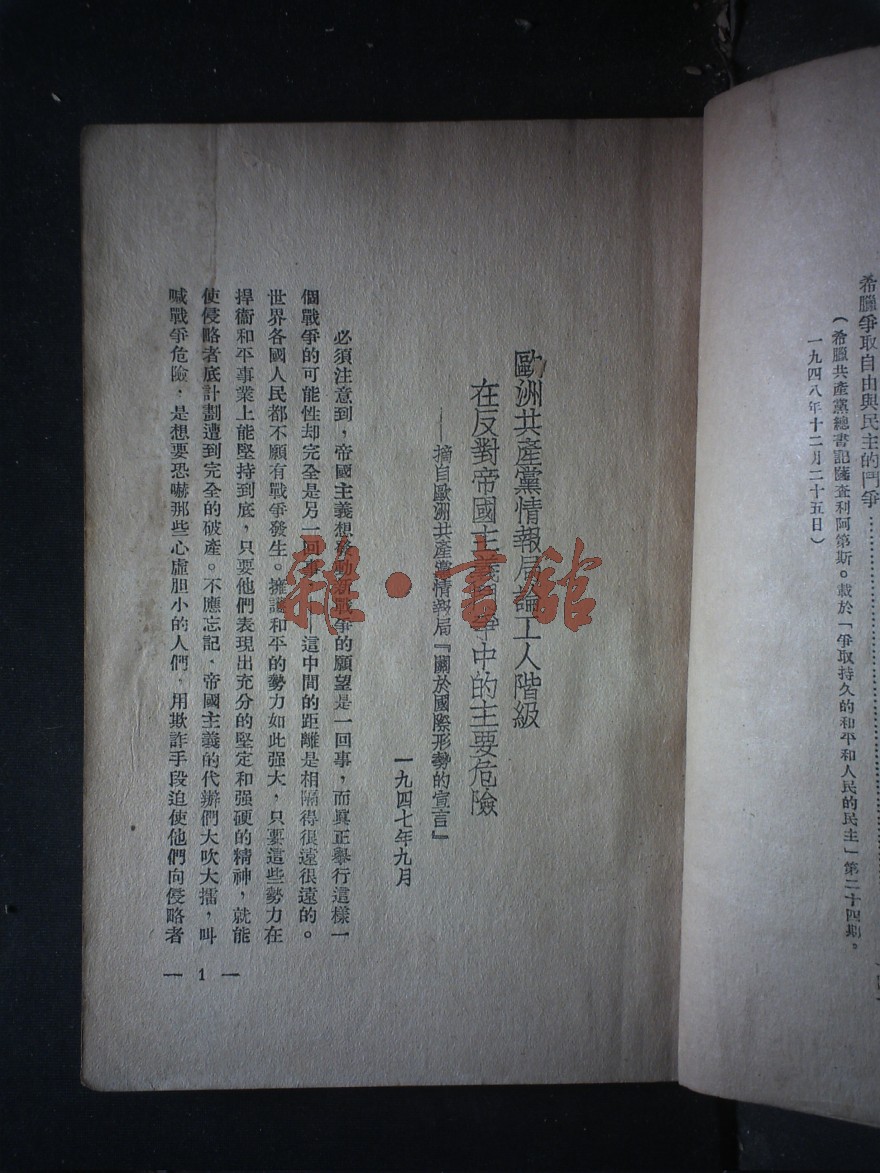 希臘爭取自由與民主的鬥爭
(希臘共產黨總書記薩查利阿第斯。載於「爭取持久的和平和人民的民主」第二十四期。
一九四八年十二月二十五日)
歐洲共產黨情報局論工人階級
在反對帝國主義 爭中的主要危險
——摘自歐洲共產黨情報局『關於國際形勢的宣言』
一九四七年九月
必須注意到，帝國主義想發動新戰爭的願望是一回事，而眞正舉行這樣一
個戰爭的可能性却完全是另一回事，——這中間的距離是相隔得很遠很遠的。
世界各國人民都不願有戰爭發生。擁護和平的勢力如此强大，只要這些勢力在
捍衞和平事業上能堅持到底，只要他們表現出充分的堅定和强硬的精神，就能
使侵略者底計劃遭到完全的破產。不應忘記、帝國主義的代辦們大吹大擂，叫
喊戰爭危險，是想要恐嚇那些心虛胆小的人們，用欺詐手段迫使他們向侵略者
— 1 —
雜·書館